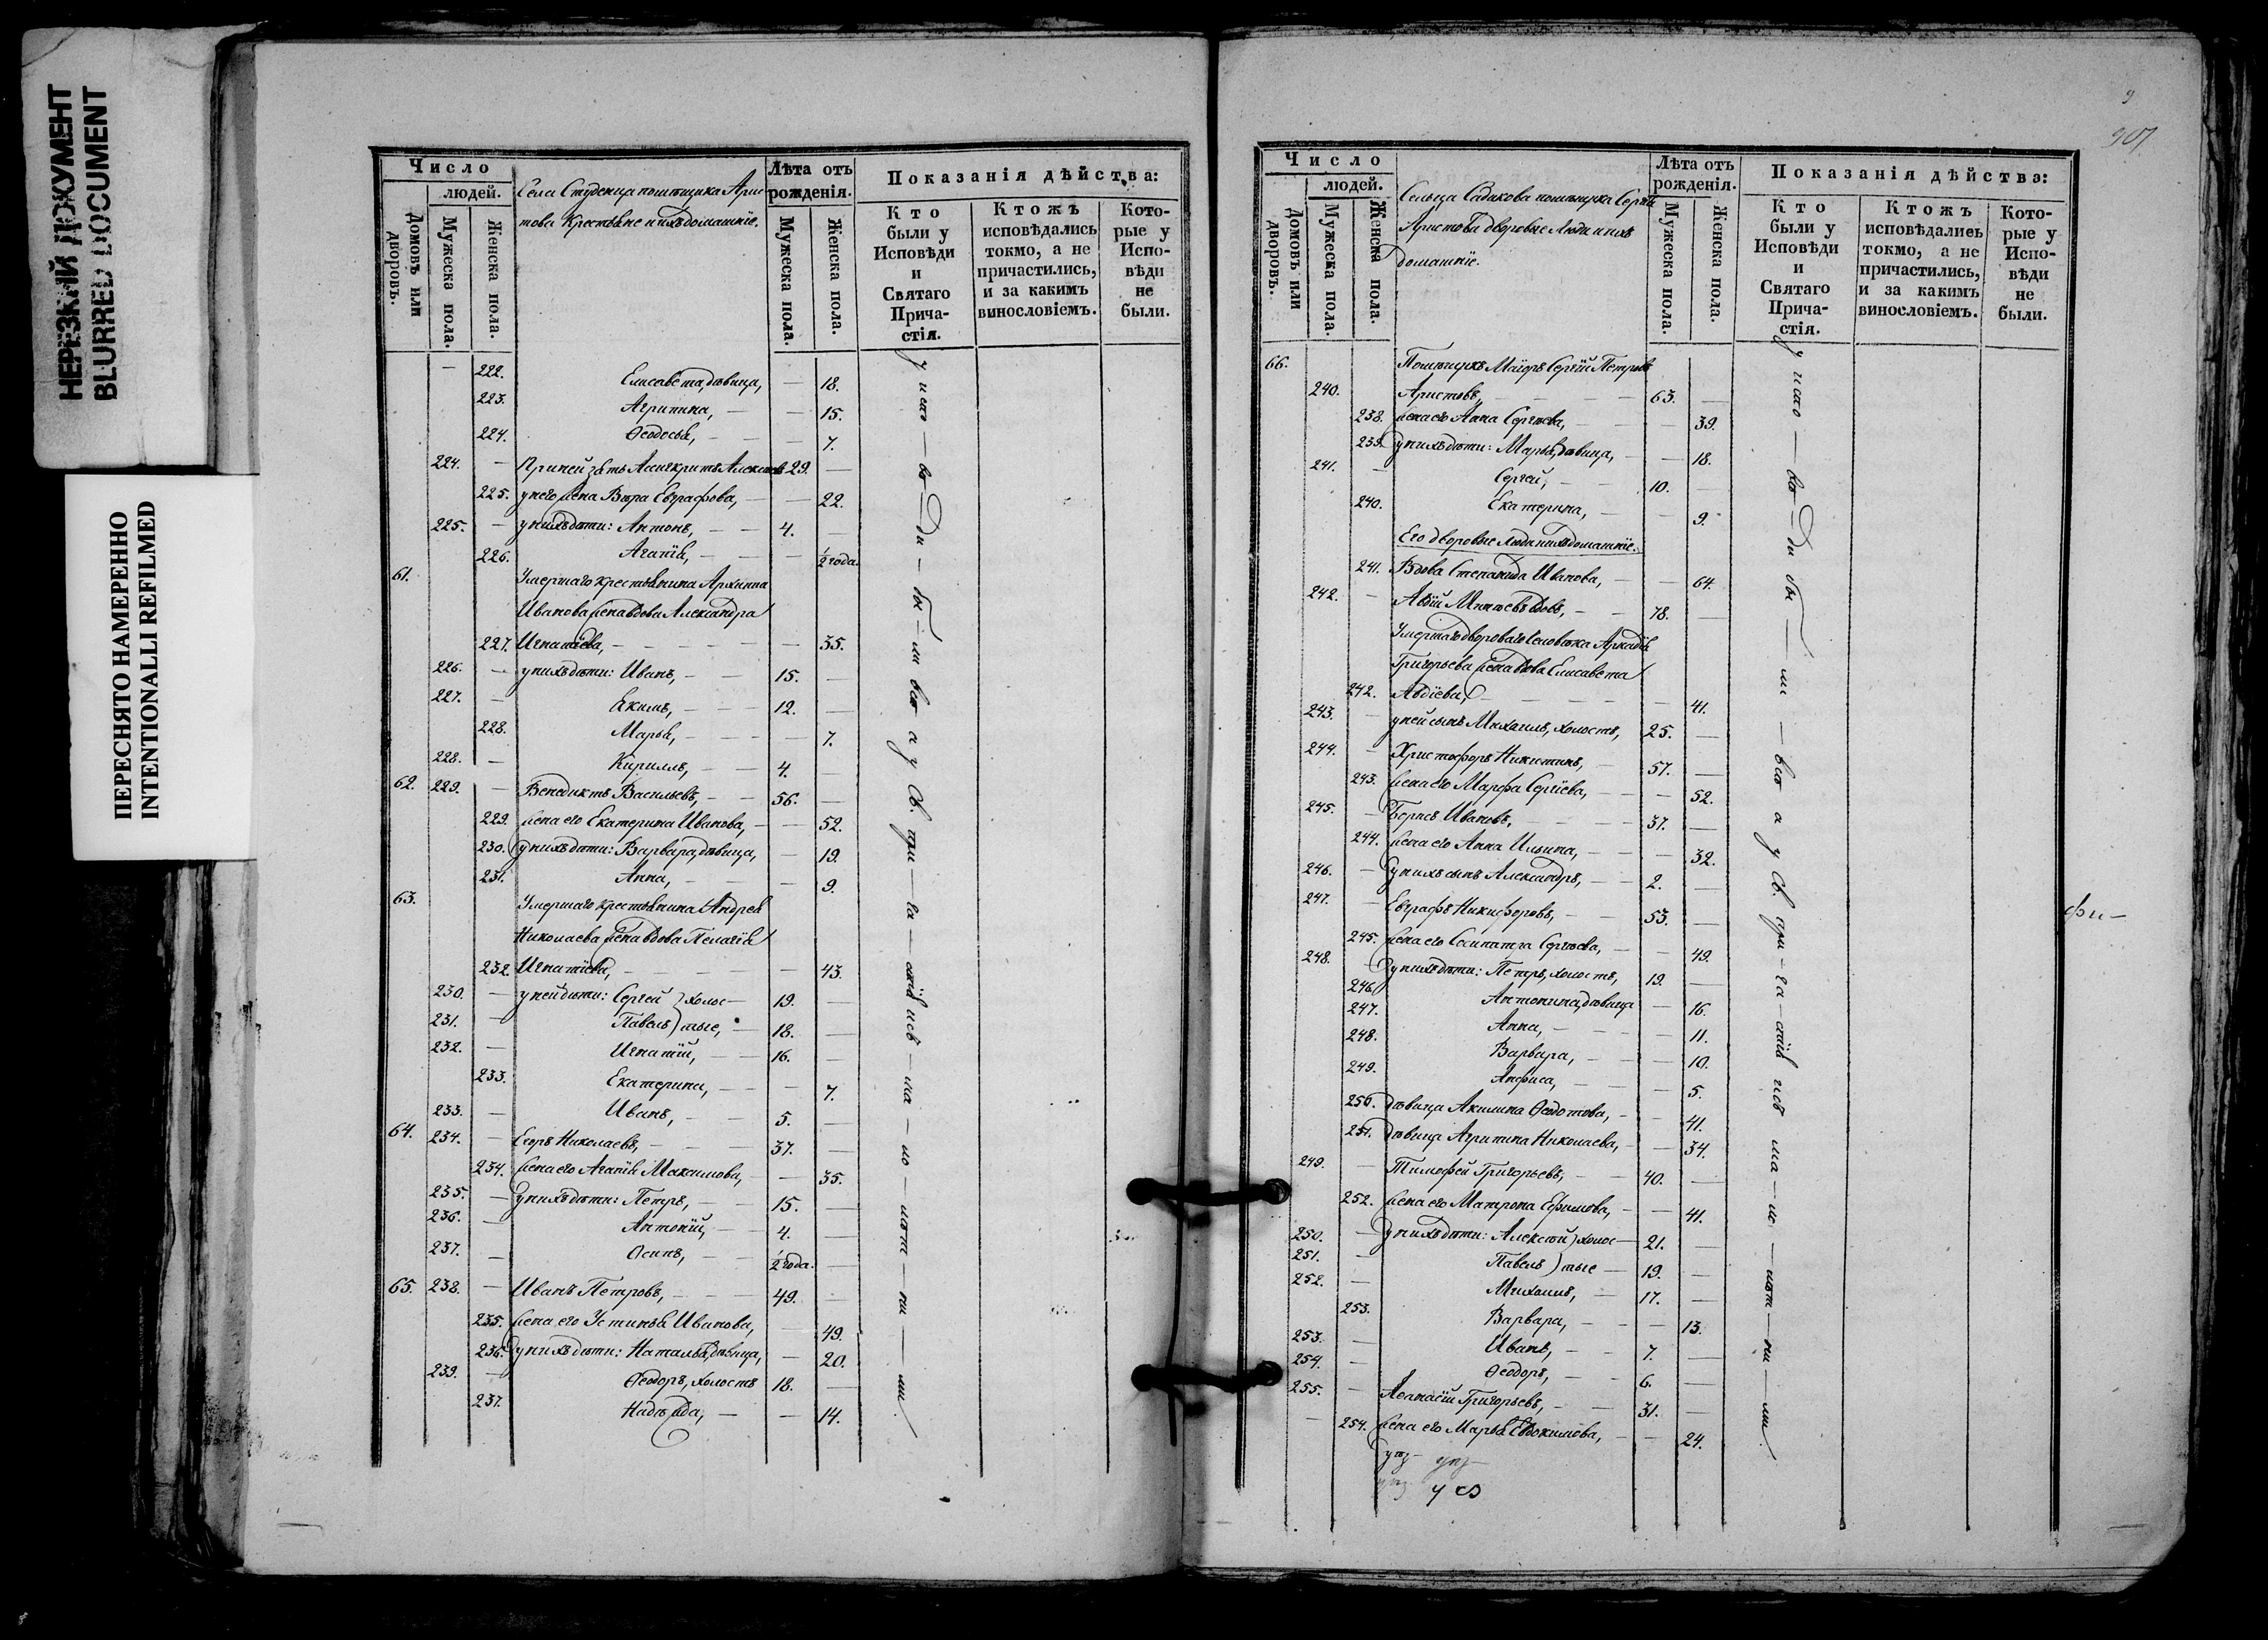 НЕРЕЗКИЙ ДОКУМЕНТ
BLURRED DOCUMENT
ПЕРЕСНЯТО НАМЕРЕННО
INTENTIONALLI REFILMED
Число
людей.
Домовъ или дворовъ.
Мужеска пола.
Женска пола.
Села Студенца помѣщика Арис
това Крестьяне и ихъ домашніе.
Лѣта отъ рожденія.
Мужеска пола.
Женска пола.
Показанія дѣйства:
Кто были у Исповѣди и Святаго Прича-стія.
Ктожъ исповѣдались токмо, а не причастились, и за какимъ винословіемъ.
Кото-рые у Испо-вѣди не были.
— 222. Елисавета, дѣвица, — 18.
223. Агрипина, — — 15.
224. Ѳеодосья, — — 7.
224. — Приней зять Асигкритъ Алексѣевъ 29. —
225. у него жена Вѣра Евграфова, — — 22.
225. — у нихъ дѣти: Антонъ, — — 4. —
226. Агапія, — — — ½ года.
61. Умершаго крестьянина Архиппа
Иванова жена вдова Александра
227. Игнатіева, — — — — — 35.
226. — у нихъ дѣти: Иванъ, — — 15. —
227. — Екимъ, — — — 12. —
228. Марья, — — — — 7.
228. — Кириллъ, — — 4.
62. 229. — Венедиктъ Васильевъ, — — 56. —
229. жена его Екатерина Иванова, — — 52.
230. у нихъ дѣти: Варвара, дѣвица, — 19.
231. Анна, — — — — 9.
63. Умершаго крестьянина Андрея
Николаева жена вдова Пелагія
232. Игнатіева, — — — — — 43.
230. — у ней дѣти: Сергей } холос— 19. —
231. — Павелъ } тые, — 18. —
232. — Игнатій, — — 16. —
233. Екатерина, — — — 7.
233. — Иванъ, — — 5. —
64. 234. — Егоръ Николаевъ, — — — 37. —
234. жена его Агапія Максимова, — 35.
235. — у нихъ дѣти: Петръ, — — 15. —
236. — Антоній, — 4. —
237. — Осипъ, — — ½ года. —
65. 238. — Иванъ Петровъ, — — — 49. —
235. жена его Устинья Иванова, — 49.
236. у нихъ дѣти: Наталья, дѣвица, — 20.
239. — Ѳеодоръ, холостъ 18. —
237. Надежда, — — 14.
907
Число
людей.
Домовъ или дворовъ.
Мужеска пола.
Женска пола.
Сельца Садакова помѣщика Сергѣя
Аристова дворовые люди и ихъ
домашніе.
Лѣта отъ рожденія.
Мужеска пола.
Женска пола.
Показанія дѣйства:
Кто были у Исповѣди и Святаго Прича-стія.
Ктожъ исповѣдались токмо, а не причастились, и за какимъ винословіемъ.
Кото-рые у Испо-вѣди не были.
66. Помѣщикъ Маіоръ Сергѣй Петровъ
240. Аристовъ, — — — — 63. —
238. жена его Анна Сергѣева, — — 39.
239. у нихъ дѣти: Марья, дѣвица, — — 18.
241. — Сергей, — — 10. —
240. Екатерина, — — 9.
Его дворовые люди и ихъ домашніе.
241. Вдова Степанида Иванова, — — 64.
242. — Авдій Минеевъ вдовъ, — — 78. —
Умершаго двороваго человѣка Аркадія
Григорьева жена вдова Елисавета
242. Авдіева, — — — — — 41.
243. — у ней сынъ Михаилъ, холостъ, 25. —
244. — Христофоръ Никитинъ, — 57. —
243. жена его Марфа Сергіева, — — 52.
245. — Борисъ Ивановъ, — — — 37. —
244. жена его Анна Ильина, — — 32.
246. — у нихъ сынъ Александръ, — — 2. —
247. — Евграфъ Никифоровъ, — — 53. —
фи—
245. жена его Сосипатра Сергѣева, — — 49.
248. — у нихъ дѣти: Петръ, холостъ, 19. —
246. Антонина, дѣвица — 16.
247. Анна, — — — — 11.
248. Варвара, — — — 10.
249. Анфиса, — — — 5.
250. дѣвица Акилина Ѳедотова, — — 41.
251. дѣвица Агрипина Николаева, — — 34.
249. — Тимофей Григорьевъ, — 40. —
252. жена его Матрона Ефимова, — — 41.
250. — у нихъ дѣти: Алексѣй } холос— 21. —
251. — Павелъ } тые — 19. —
252. — Михаилъ, — 17. —
253. Варвара, — — — 13.
253. — Иванъ, — — 7. —
254. — Ѳеодоръ, — — 6. —
255. — Аѳанасій Григорьевъ, — — 31. —
— 254. жена его Марья Евдокимова, — — 24.